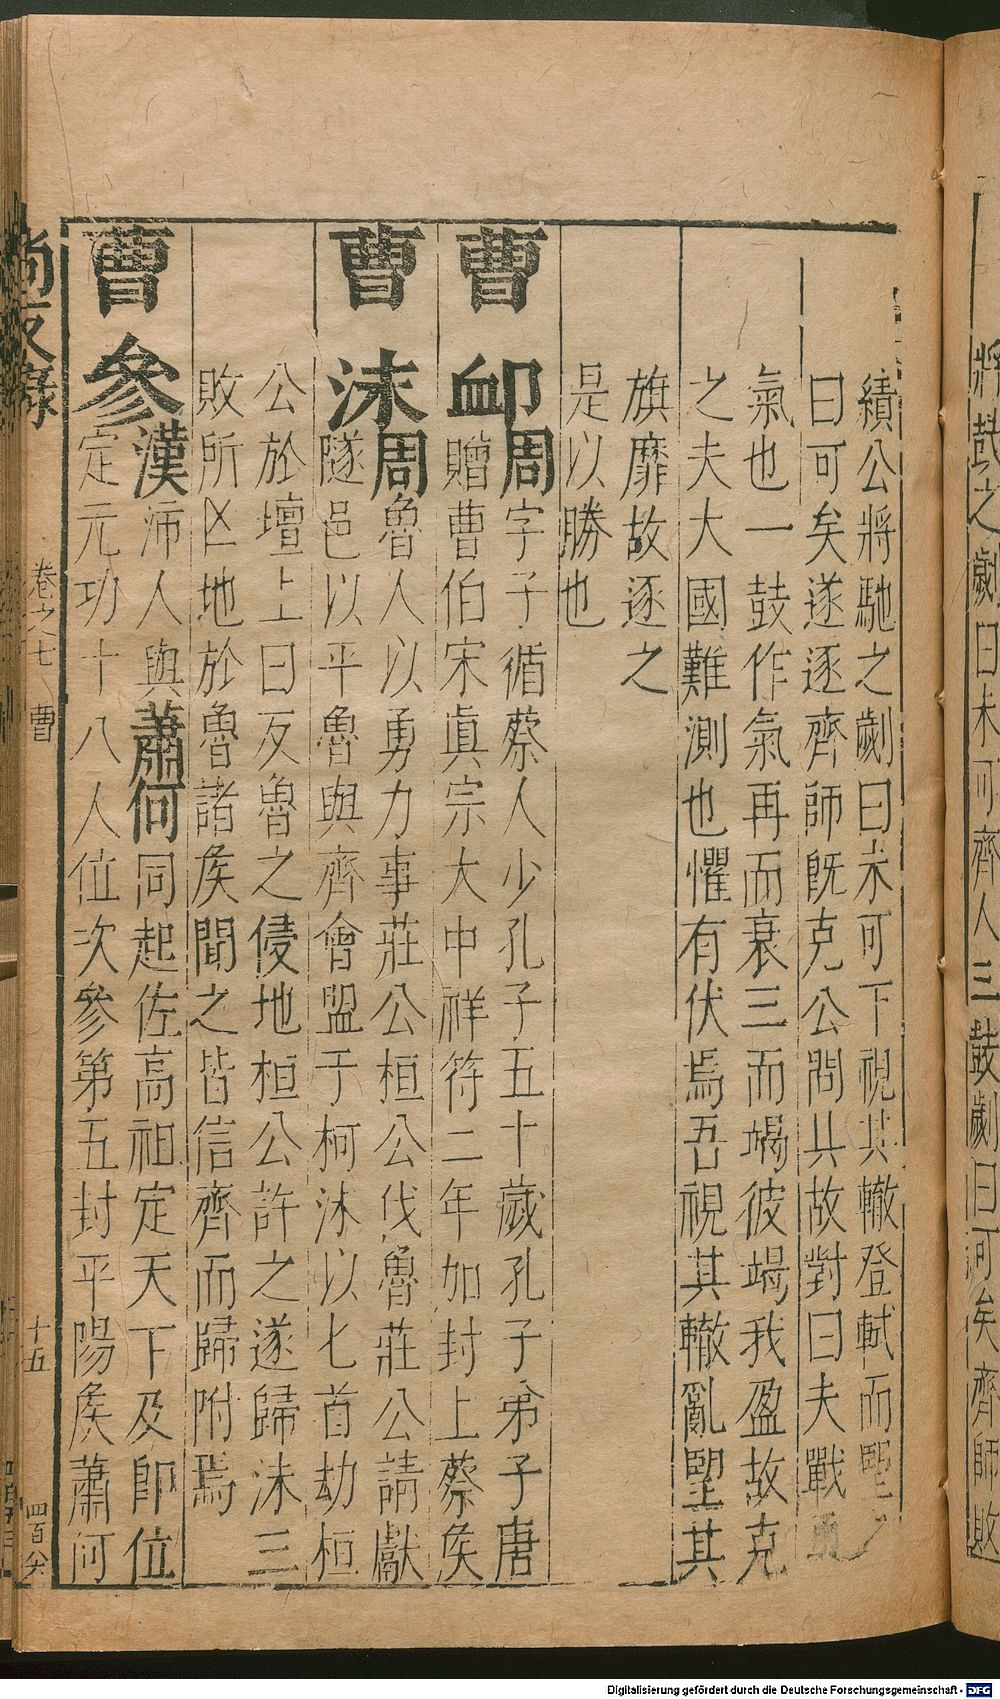 將鼓之歲曰未可齊人三鼓歲曰可矣齊師敗
績公將馳之劌曰未可下視其轍登軾而朢之
曰可矣遂逐齊師旣克公問其故對曰夫戰勇
氣也一鼓作氣再而衰三而竭彼竭我盈故克
之夫大國難測也懼有伏焉吾視其轍亂朢其
旗靡故逐之
是以勝也
曹卹周字子循蔡人少孔子五十歲孔子弟子唐
贈曹伯宋眞宗大中祥符二年加封上蔡矦
曹沫周魯人以勇力事莊公桓公伐魯莊公請獻
隧邑以平魯與齊會盟于柯沫以匕首劫桓
公於壇上曰反魯之侵地桓公許之遂歸沫三
敗所亾地於魯諸矦聞之皆信齊而歸附焉
曹參漢沛人與蕭何同起佐高祖定天下及卽位
定元功十八人位次參第五封平陽矦蕭何
尙友錄 卷之七 曹 十五 四百
Digitalisierung gefördert durch die Deutsche Forschungsgemeinschaft - DFG